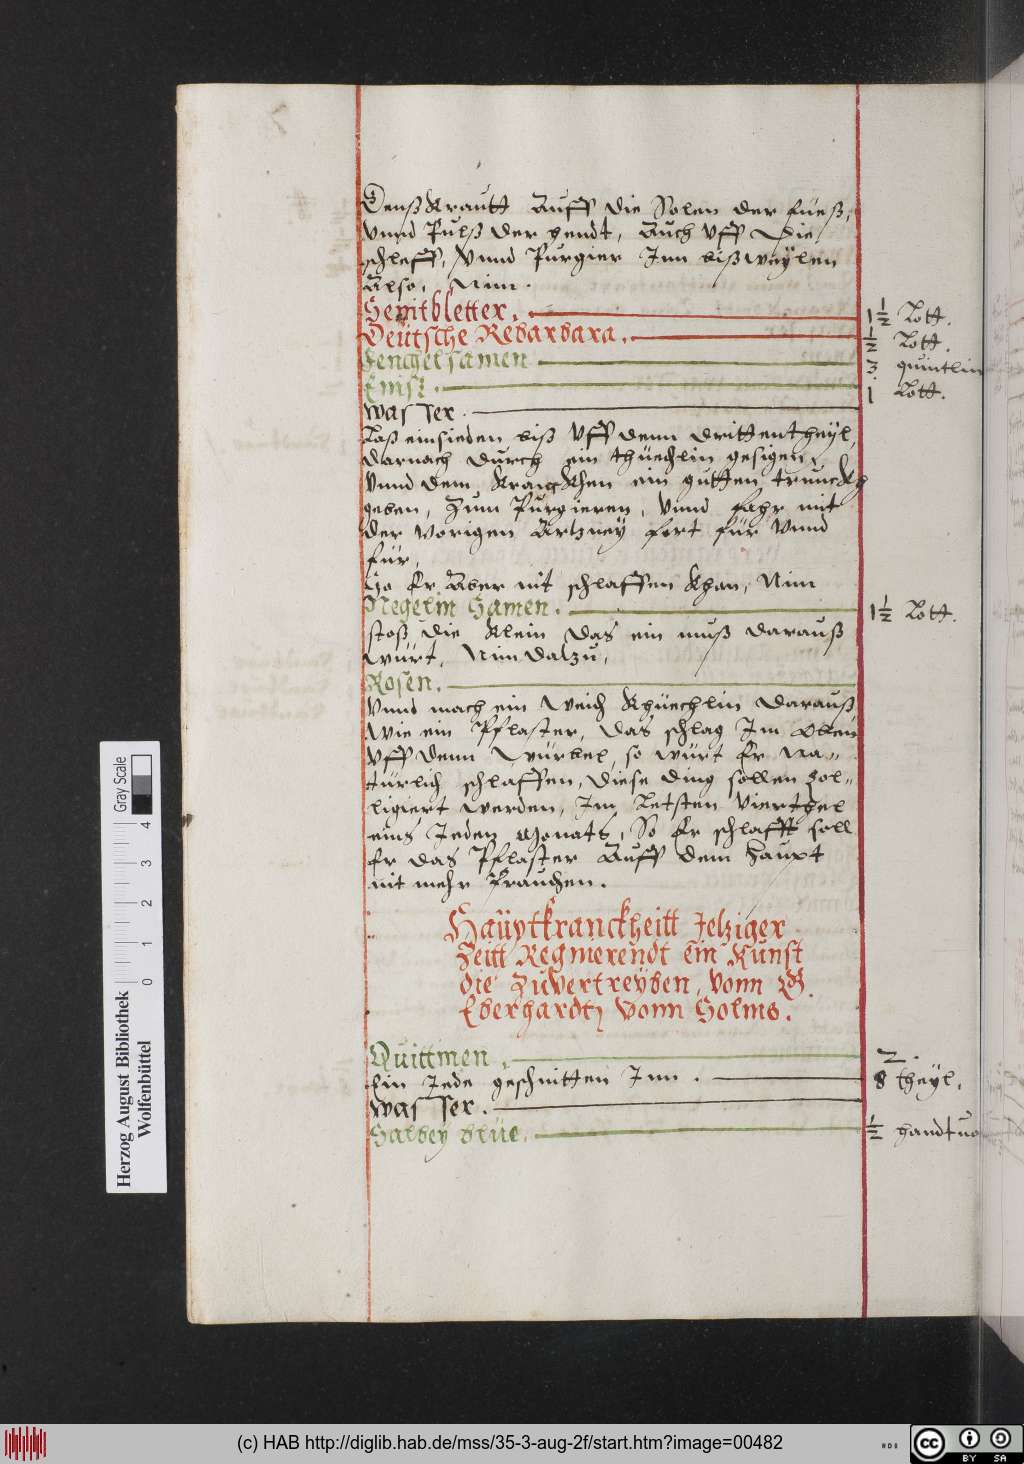 Denß Krautt Auff die Solen der füeß,
vnnd Pulß der hendt, Auch vff Die
schleff, Vnnd Purgier Inn bißweÿlen
Also, Nim.
Senitbletter. 1½ Lott.
Deütsche Rebarbara. ½ Lott.
Fenchelsamen 3. quintlin
Eniß. 1 Lott.
Wasser.
Laß einsieden biß Vff denn dritten theÿl,
darnach durch ein thüechlin gesigen,
Vnnd dem Kranckhen ein gutten trunckh
geben, Zum Purgieren, Vnnd fahr mit
der vorigen Artzneÿ fort für Vnnd
für,
So Er Aber nit schlaffen khan, Nim
Negelin Samen. 1½ Lott.
stoß die klein das ein muß darauß
würt, Nim datzu,
Rosen.
Vnnd mach ein Weich Khüechlin darauß
Wie ein Pflaster, das schlag Im oben
Vff denn Würbel, so würt Er Na-
türlich schlaffen, Diese ding sollen Col-
ligiert werden, Im Letsten Vierthel
eins Jeden Monats, So Er schlafft soll
Er das Pflaster Auff dem Haupt
nit mehr brauchen.
Haüptkranckheitt Jetziger
Zeitt Regnierendt ein Kunst
die Zuvertreÿben, Vonn
Eberhardt Vonn Solms.
Quittinen 2.
Ein Jede geschnitten Inn. 8 theÿl.
Wasser.
Salbeÿ blüe. ½ handtuo
Herzog August Bibliothek
Wolfenbüttel
0 1 2 3 4
Gray Scale
(c) HAB http://diglib.hab.de/mss/35-3-aug-2f/start.htm?image=00482
cc BY SA